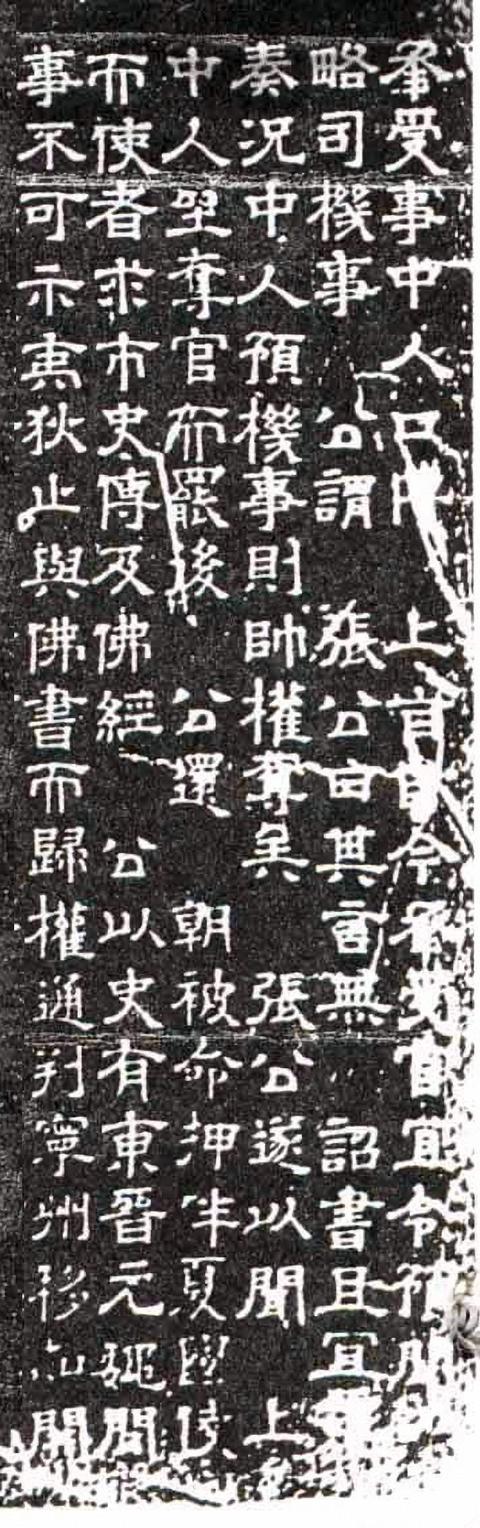 承受事中人口 上 自今承受官宜令預聞
略司機事 公謂 張公曰其言無 詔書且宜
奏況中人預機事則帥權奪矣 張公遂以聞 上
中人坐奪官而罷後 公還 朝被命押伴夏國使
而使者求市史傳及佛經 公以史有東晉元魏間
事不可示夷狄止與佛書而歸權通判寧州移知開